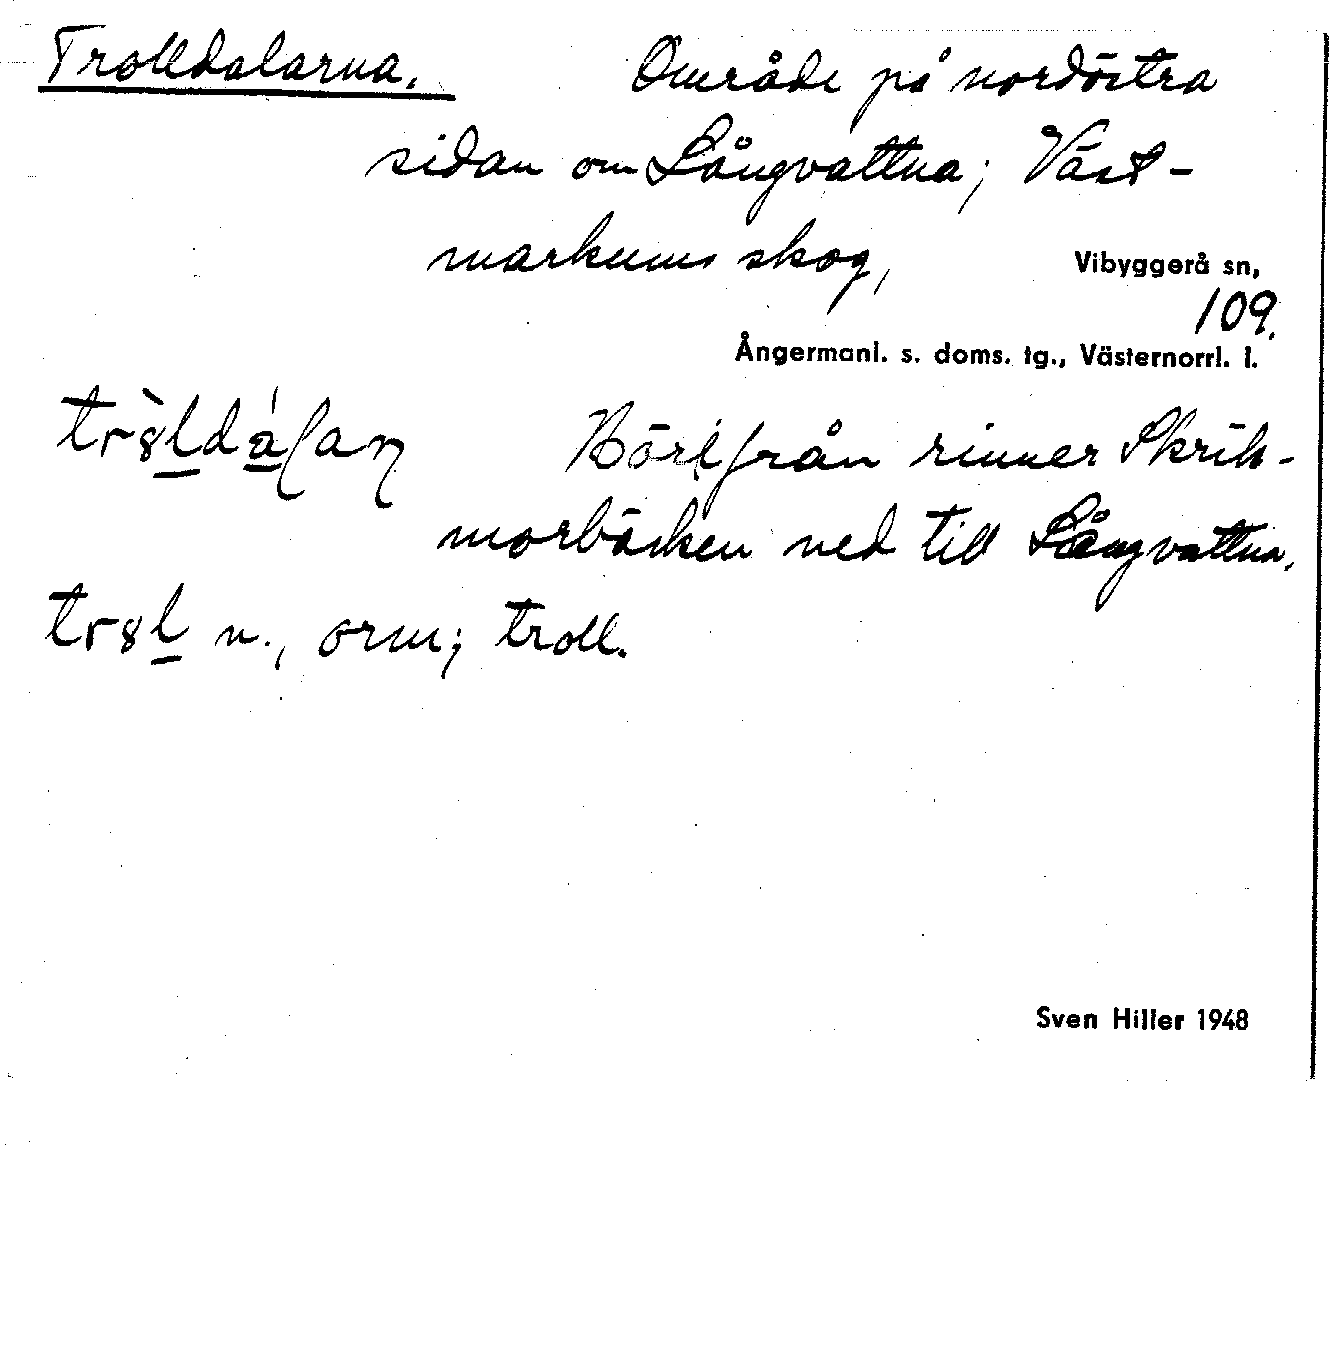 Trolldalarna. Område på nordöstra
sidan om Långvattna; Väst-
markums skog, Vibyggerå sn,
109.
Ångermanl. s. doms. tg., Västernorrl. l.
Härifrån rinner Skrik-
morbäcken ned till Långvattna.
n., orm; troll.
Sven Hiller 1948